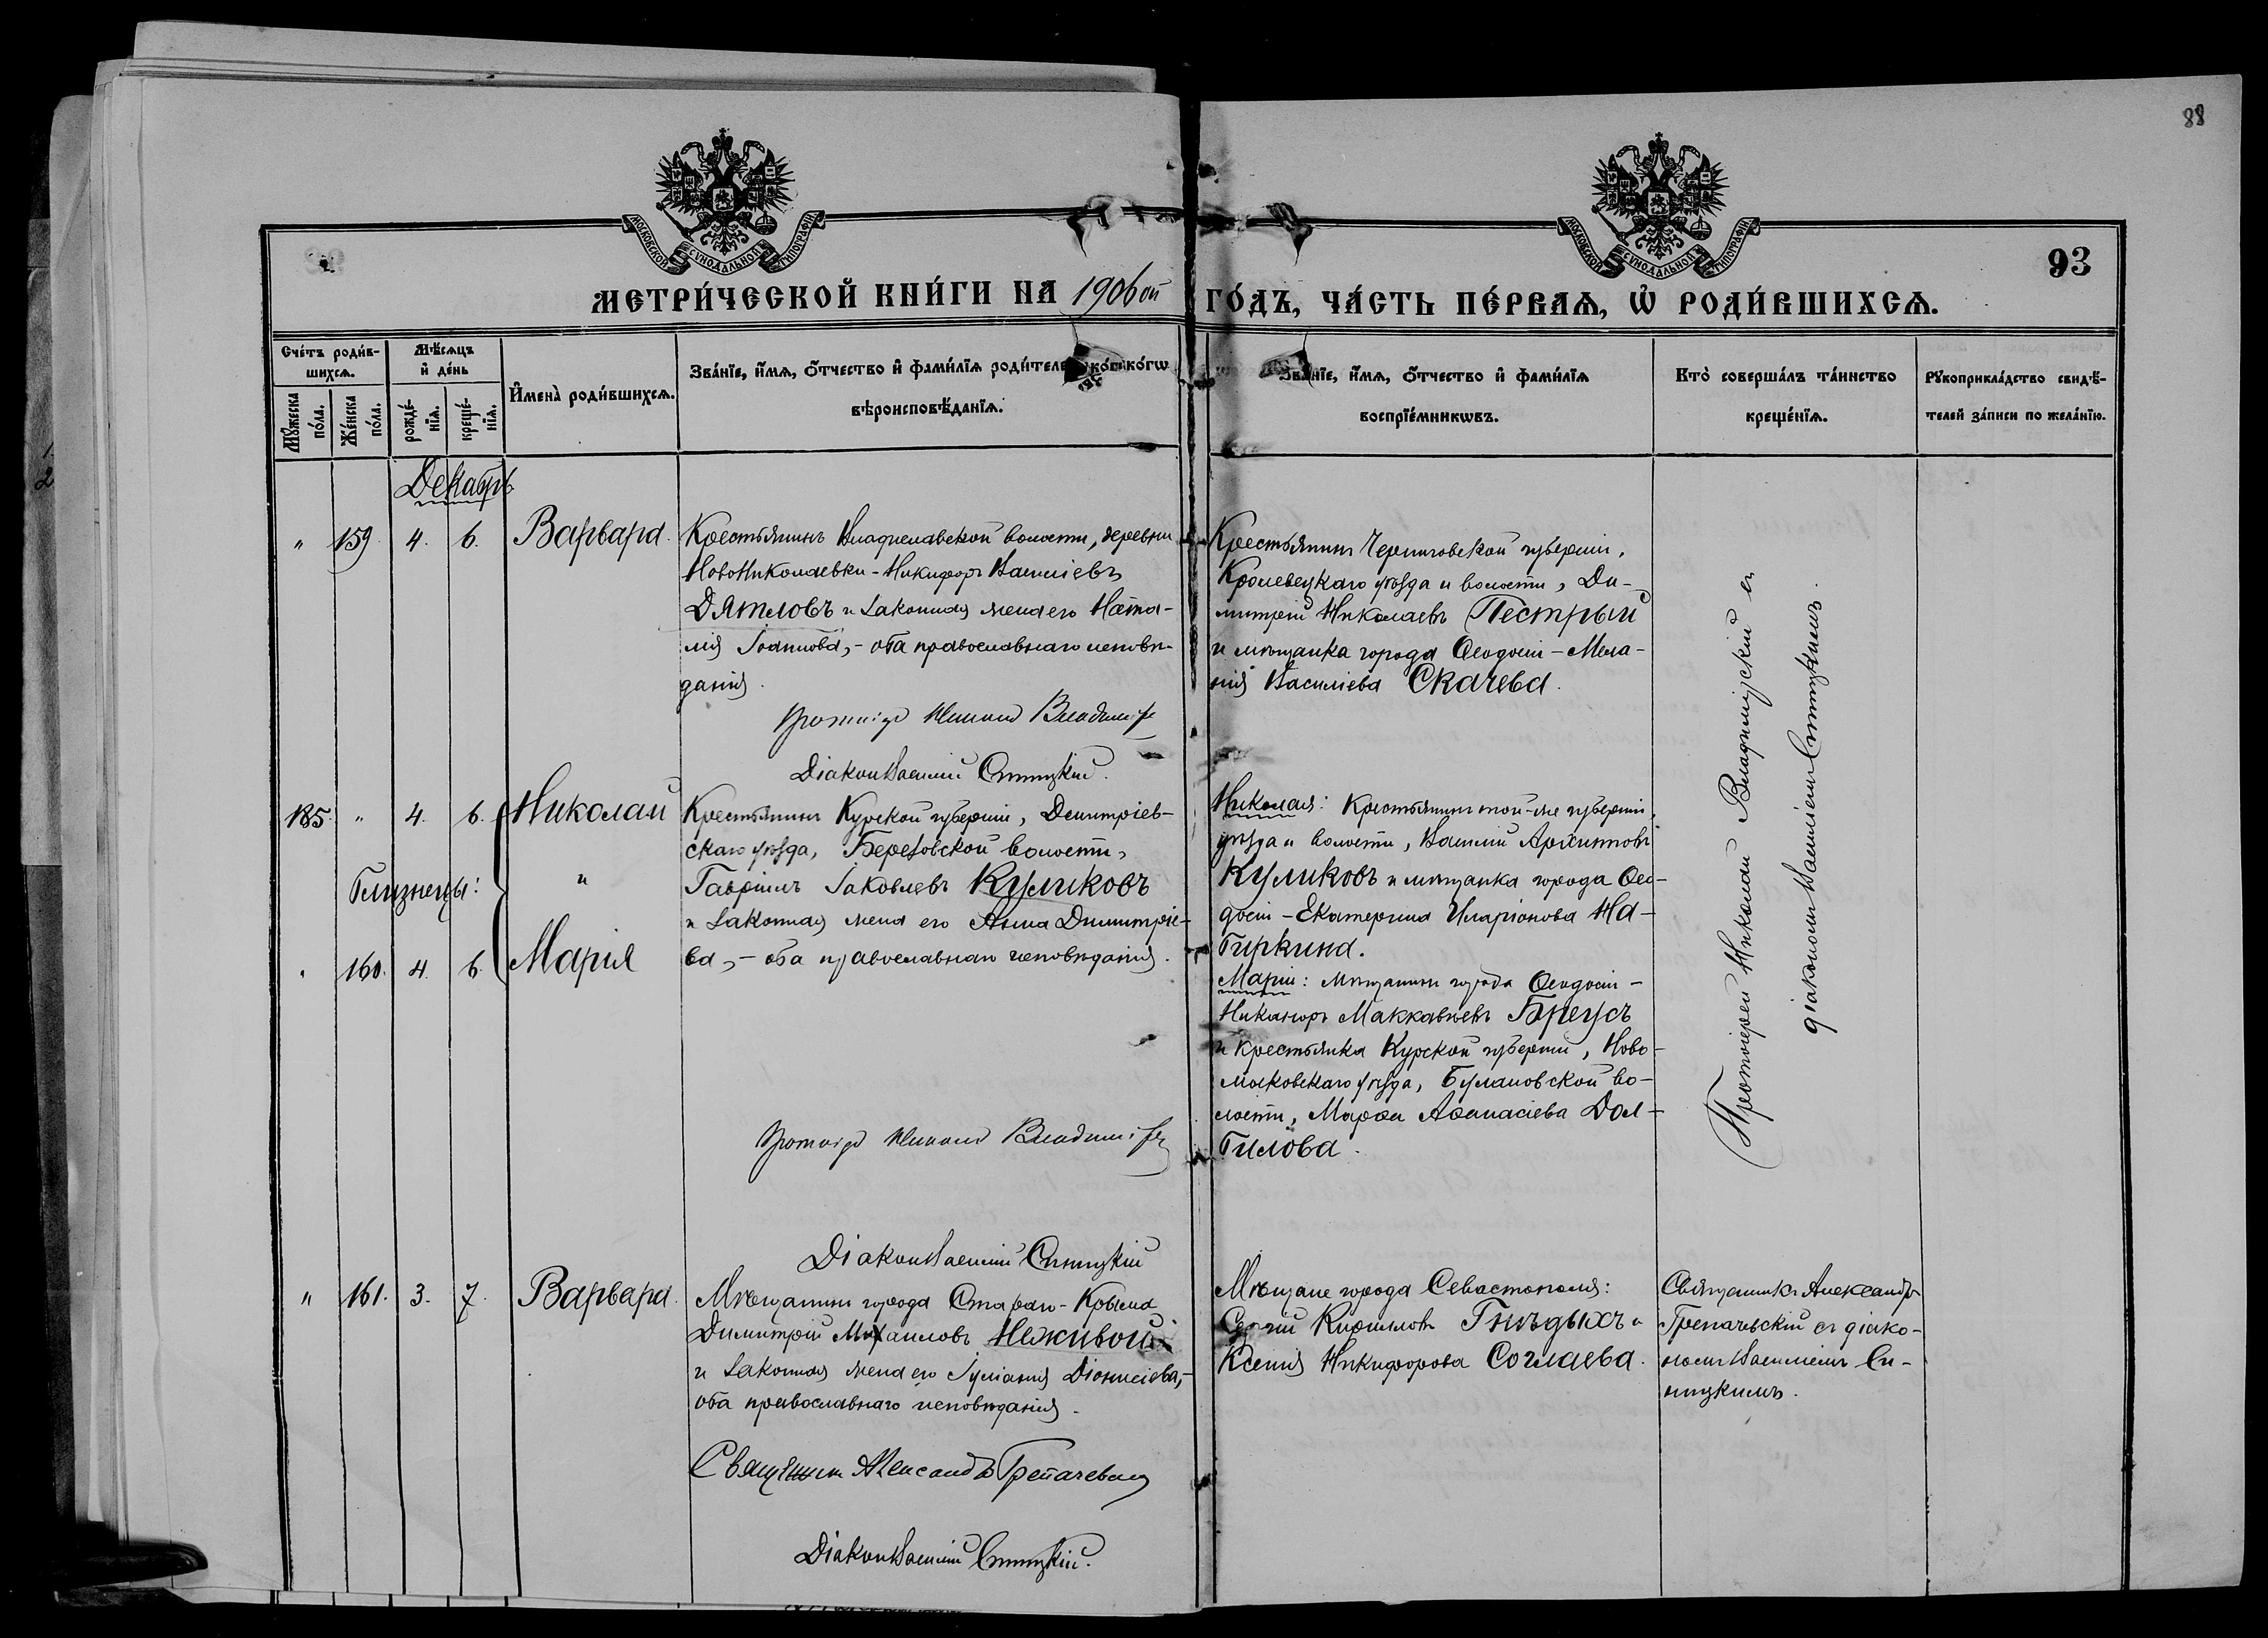 88
МОСКОВСКОЙ СѴНОДАЛЬНОЙ ТИПОГРАФІИ
МОСКОВСКОЙ СѴНОДАЛЬНОЙ ТИПОГРАФІИ
93
МЕТРИ́ЧЕСКОЙ КНИ́ГИ НА 1906ой ГО́ДЪ, ЧА́СТЬ ПЕ́РВАѦ, Ѡ҆ РОДИ́ВШИХСѦ.
Сче́тъ роди́в-
шихсѧ.
Мꙋ́жеска по́ла.
Же́нска по́ла.
Мѣ́сѧцъ
и҆ де́нь
рожде́-
нїѧ.
креще́-
нїѧ.
И҆мена̀ роди́вшихсѧ.
Зва́нїе, и҆́мѧ, ѻ҆́тчество и҆ фами́лїѧ роди́телей, и҆ како́гѡ
вѣроисповѣ́данїѧ.
Зва́нїе, и҆́мѧ, ѻ҆́тчество и҆ фами́лїѧ
воспрїе́мникѡвъ.
Кто̀ соверша́лъ та́инство
креще́нїѧ.
Рꙋкоприкла́дство свидѣ́-
телей за́писи по жела́нїю.
Декабрь
" 159. 4. 6. Варвара.
Крестьянинъ Владиславской волости, деревни
Новониколаевки - Никифоръ Василіевъ
Дятловъ и законная жена его Ната-
лія Іоаннова, - оба православнаго исповѣ-
данія.
Протоіер Николай Владимір
Діаконъ Василій Синицкій.
Крестьянинъ Черниговской губерніи,
Кролевецкаго уѣзда и волости, Ди-
митрій Николаевъ Пестрый
и мѣщанка города Ѳеодосіи - Мела-
нія Василіева Скачева.
Протоіерей Николай Владимірскій съ
діакономъ Василіемъ Синицкимъ.
185. " 4. 6. Николай
Близнецы: "
" 160. 4. 6. Марія
Крестьянинъ Курской губерніи, Димитріев-
скаго уѣзда, Березовской волости,
Гавріилъ Іаковлевъ Куликовъ
и законная жена его Анна Димитріе-
ва, - оба православнаго исповѣданія.
Протоіер Николай Владимір
Діаконъ Василій Синицкій
Николая: Крестьянинъ той-же губерніи,
уѣзда и волости, Василій Архиповъ
Куликовъ и мѣщанка города Ѳео-
досіи - Екатерина Иларіонова На-
гиркина.
Маріи: Мѣщанинъ города Ѳеодосіи -
Никаноръ Маккавѣевъ Бреусъ
и крестьянка Курской губерніи, Ново-
московскаго уѣзда, Булановской во-
лости, Марѳа Аѳанасіева Дол-
гилова.
" 161. 3. 7. Варвара.
Мѣщанинъ города Стараго-Крыма
Димитрій Михаиловъ Неживой
и законная жена его Іуліанія Діонисіева, -
оба православнаго исповѣданія.
Священник Александръ
Діаконъ Василій Синицкій.
Мѣщане города Севастополя:
Сергій Кирилловъ Гнѣдыхъ и
Ксенія Никифорова Соглаева.
Священникъ Александръ
съ діако-
номъ Василіемъ Си-
ницкимъ.